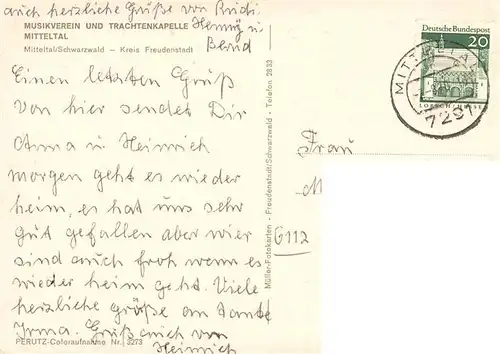 auch herzliche Grüße von Rudi
Henny u
Bernd
MUSIKVEREIN UND TRACHTENKAPELLE
MITTELTAL
Mitteltal/Schwarzwald — Kreis Freudenstadt
Einen letzten Gruß
von hier sendet Dir
Anna u Heinrich
morgen geht es wieder
heim, es hat uns sehr
gut gefallen aber wier
sind auch froh wenn es
wieder heim geht. Viele
herzliche grüße an Tante
Irma. Gruß auch von
Heinrich
PERUTZ-Coloraufnahme Nr. 3273
Müller-Fotokarten - Freudenstadt/Schwarzwald - Telefon 2833
Deutsche Bundespost
20
LORSCH/HESSEN
MITTELTAL
7291
Frau
M
6112